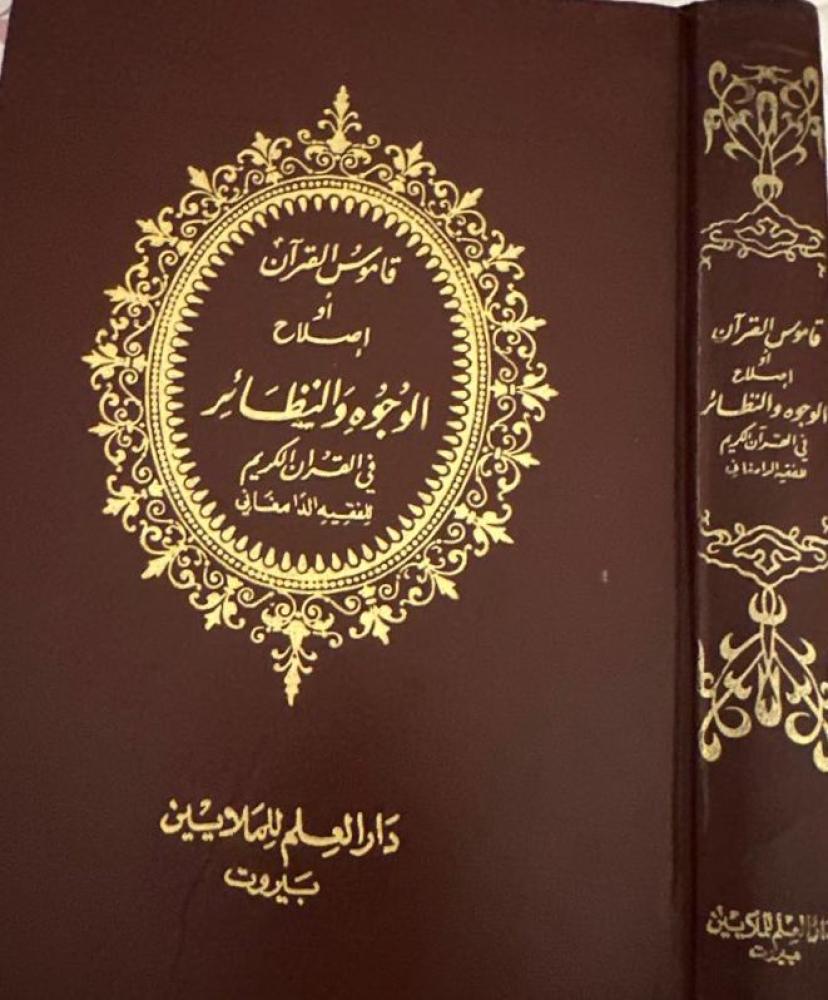 قاموسُ القرآن
أو
إصلاح
الوُجُوه وَالنَّظَائِر
في القرآن الكريم
للفقيه الدامغاني
دَار العِلم لِلمَلايين
بَيروت
قاموس القرآن
أو
إصلاح
الوجوه والنظائر
في القرآن الكريم
للفقيه الدامغاني
دار العلم للملايين
بيروت